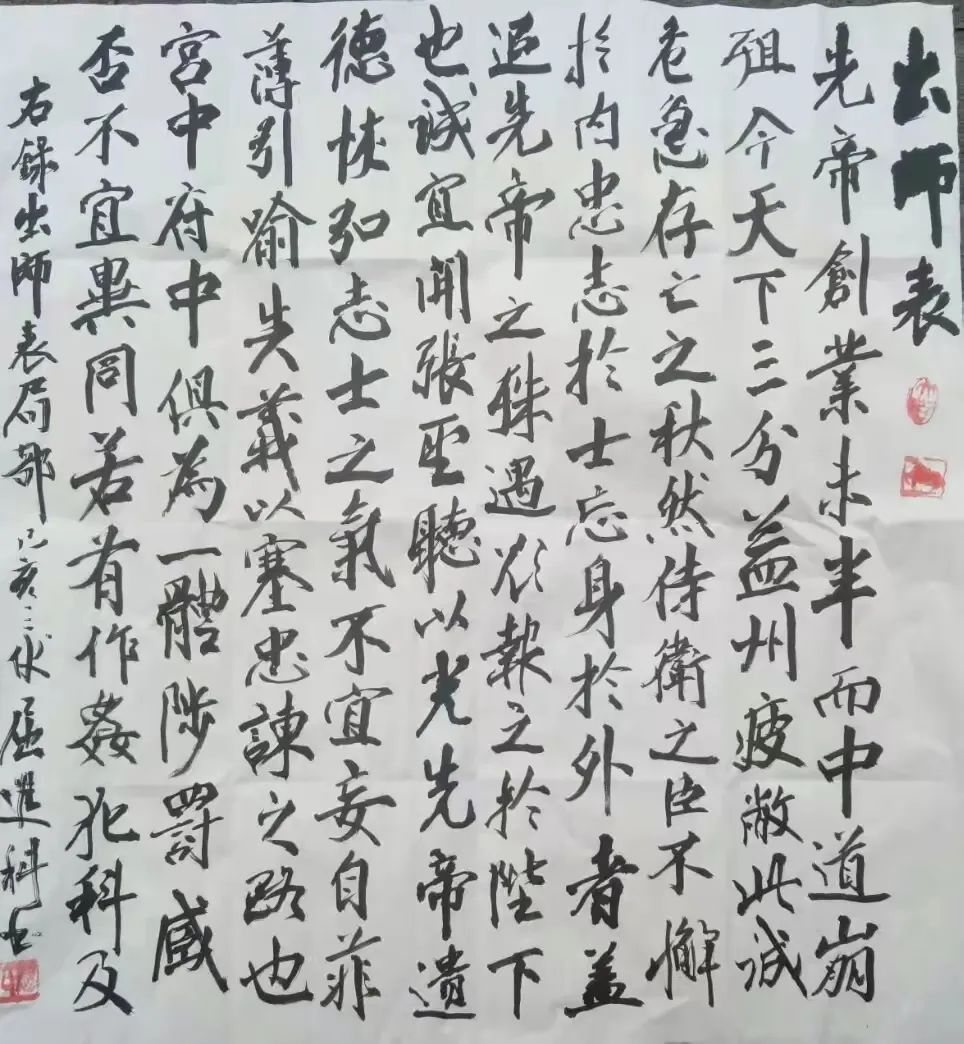 出師表
先帝創業未半而中道崩
殂今天下三分益州疲敝此誠
危急存亡之秋然侍衛之臣不懈
於内忠志於士忘身於外者盖
追先帝之殊遇欲報之於陛下
也誠宜開張聖聽以光先帝遺
德恢弘志士之氣不宜妄自菲
薄引喻失義以塞忠諫之路也
宮中府中俱為一體陟罰臧
否不宜異同若有作姦犯科及
右録出師表局部己亥二伏進科書